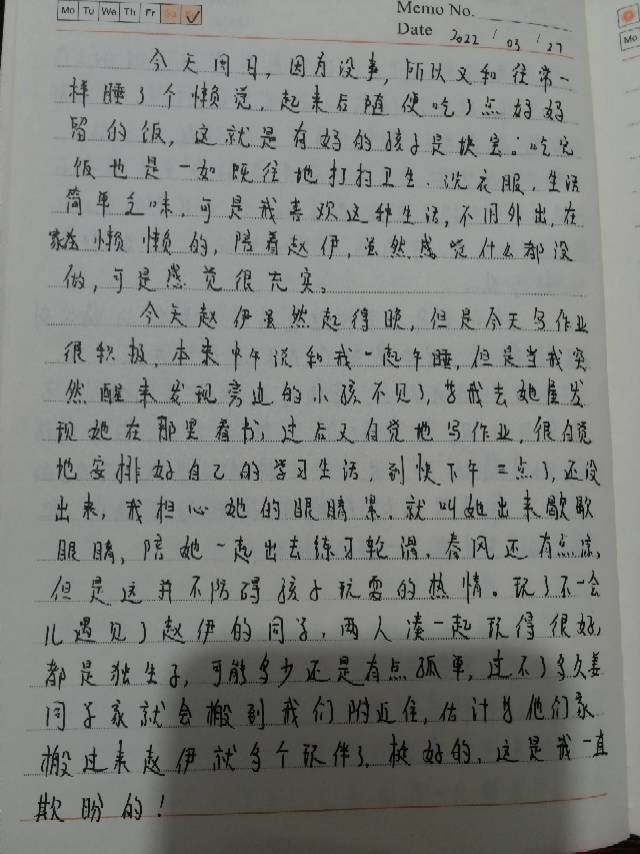 Mo Tu We Th Fr Sa Su
Memo No.
Date 2022 / 03 / 27
今天周日，因为没事，所以又和往常一
样睡了个懒觉，起来后随便吃了点好好
留的饭，这就是有好的孩子是块宝。吃完
饭也是一如既往地打扫卫生、洗衣服，生活
简单乏味，可是我喜欢这种生活，不用外出，在
家懒懒的，陪着赵伊，虽然感觉什么都没
做，可是感觉很充实。
今天赵伊虽然起得晚，但是今天写作业
很积极，本来中午说和我一起午睡，但是当我突
然醒来发现旁边的小孩不见了，等我去她屋发
现她在那里看书，过后又自觉地写作业，很自觉
地安排好自己的学习生活，到快下午三点了，还没
出来，我担心她的眼睛累，就叫她出来歇歇
眼睛，陪她一起出去练习轮滑，春风还有点凉，
但是这并不防碍孩子玩耍的热情。玩了不一会
儿遇见了赵伊的同学，两人凑一起玩得很好，
都是独生子，可能多少还是有点孤单，过不了多久姜
同学家就会搬到我们附近住，估计等他们家
搬过来赵伊就多个玩伴了，挺好的，这是我一直
欺盼的！
Mo